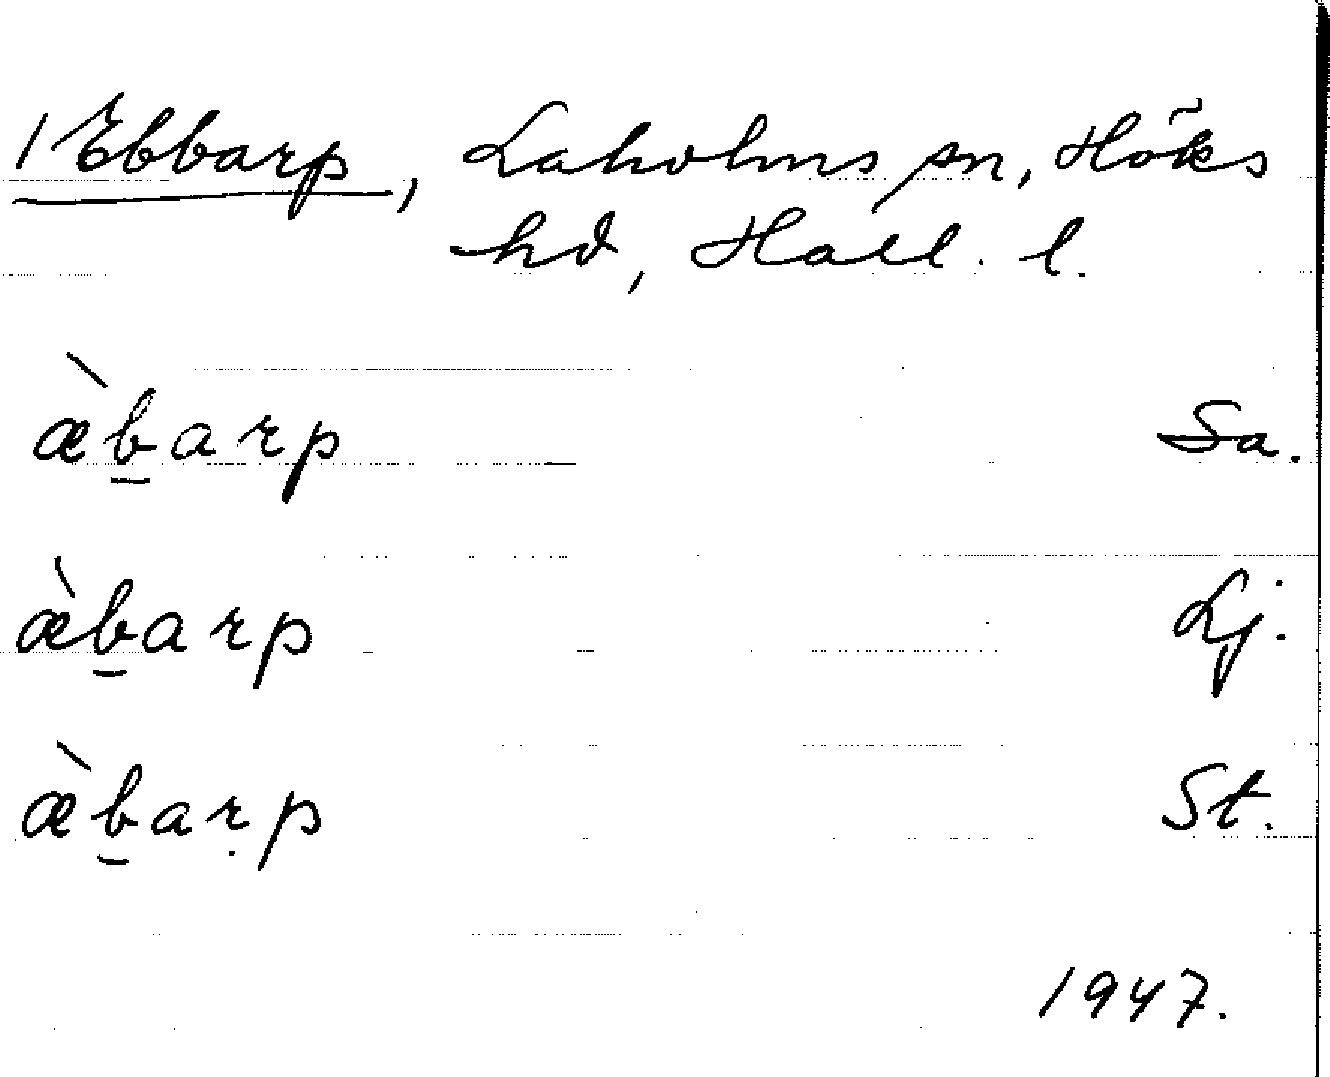 /Ebbarp, Laholms sn, Höks
hd, Hall. l.
æ̀b̲arp Sa.
æ̀b̲arp Lj.
æ̀b̲aṛp St.
1947.